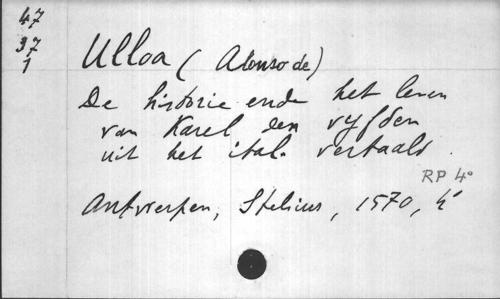 47
37
1
Ulloa (Alonso de)
De historie ende het leven
van Karel den vyfden
uit het ital. vertaald.
RP 4°
Antwerpen, Stelius, 1570, 4°